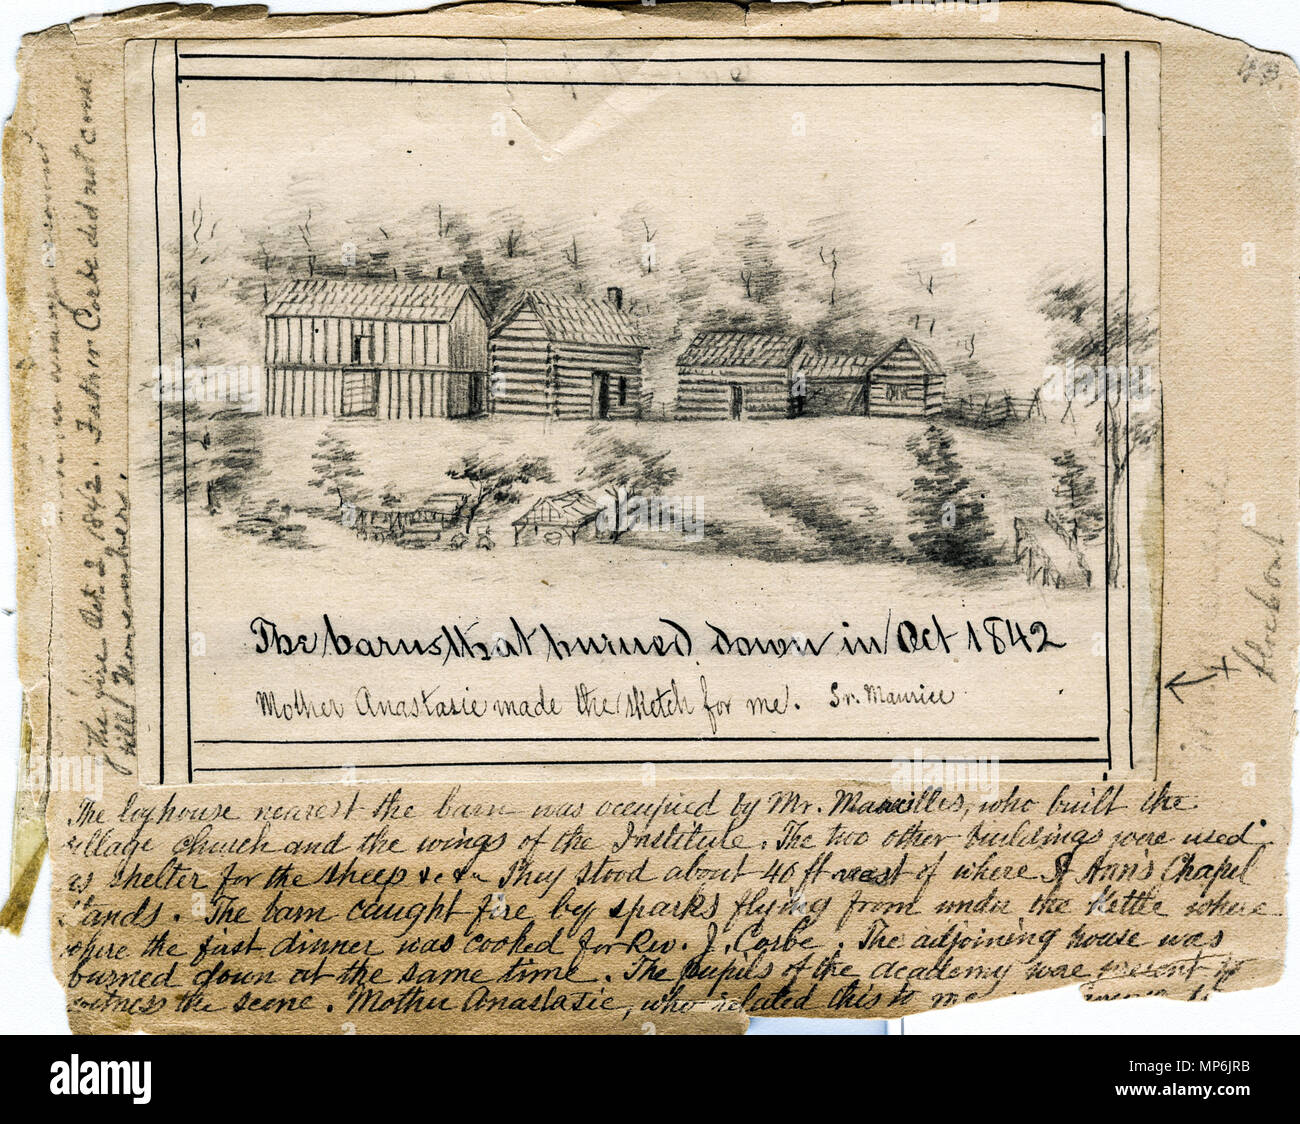 43.
The barns that burned down in Oct 1842
Mother Anastasie made the sketch for me. Sr. Maurice
The log house nearest the barn was occupied by Mr. Marilles, who built the
village church and the wings of the Institute. The two other buildings were used
as shelter for the sheep &c &c They stood about 40 ft west of where St Ann's Chapel
stands. The barn caught fire by sparks flying from under the kettle where
where the first dinner was cooked for Rev. J. Corbe. The adjoining house was
burned down at the same time. The pupils of the academy were present to
witness the scene. Mother Anastasie, who related this to me
The fire Oct. 2, 1842. Father Corbe did not come
till November.
alamy
Image ID: MP6JRB
www.alamy.com